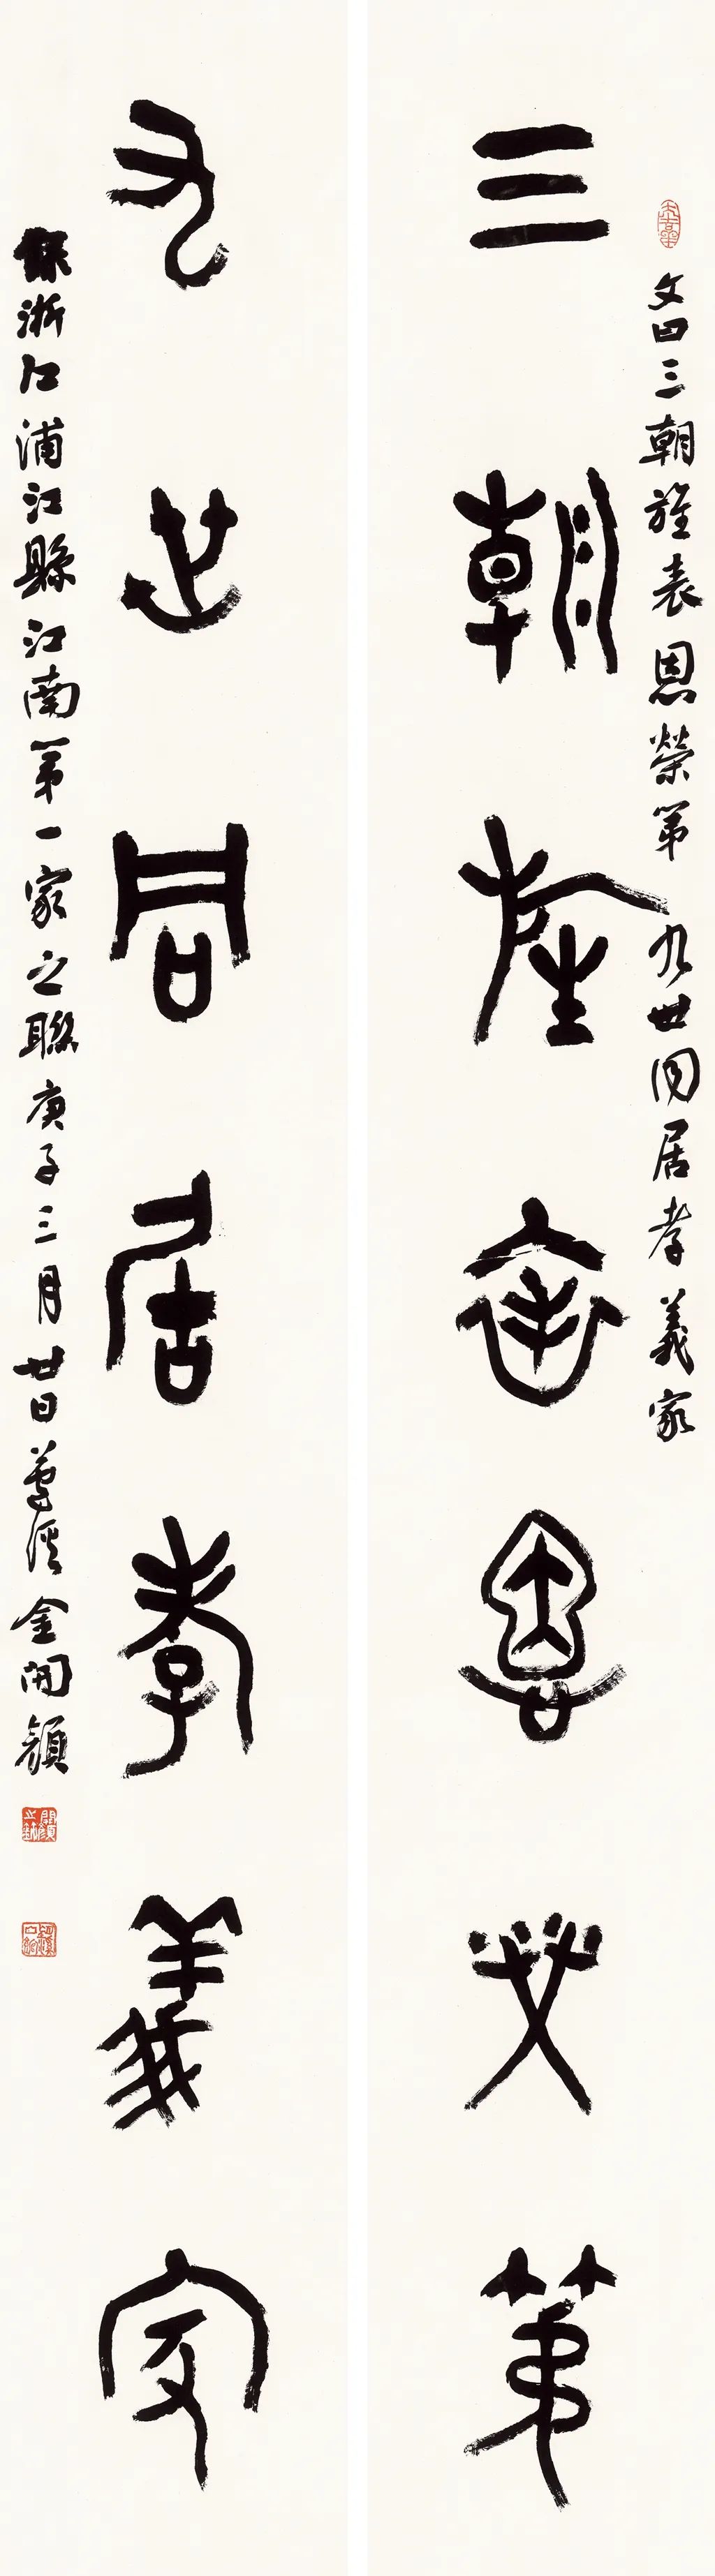 文曰三朝旌表恩榮第 九世同居孝義家
三朝旌表恩榮第
九世同居孝義家
錄浙江浦江縣江南第一家之聯庚子三月廿日蓴溪金開顏